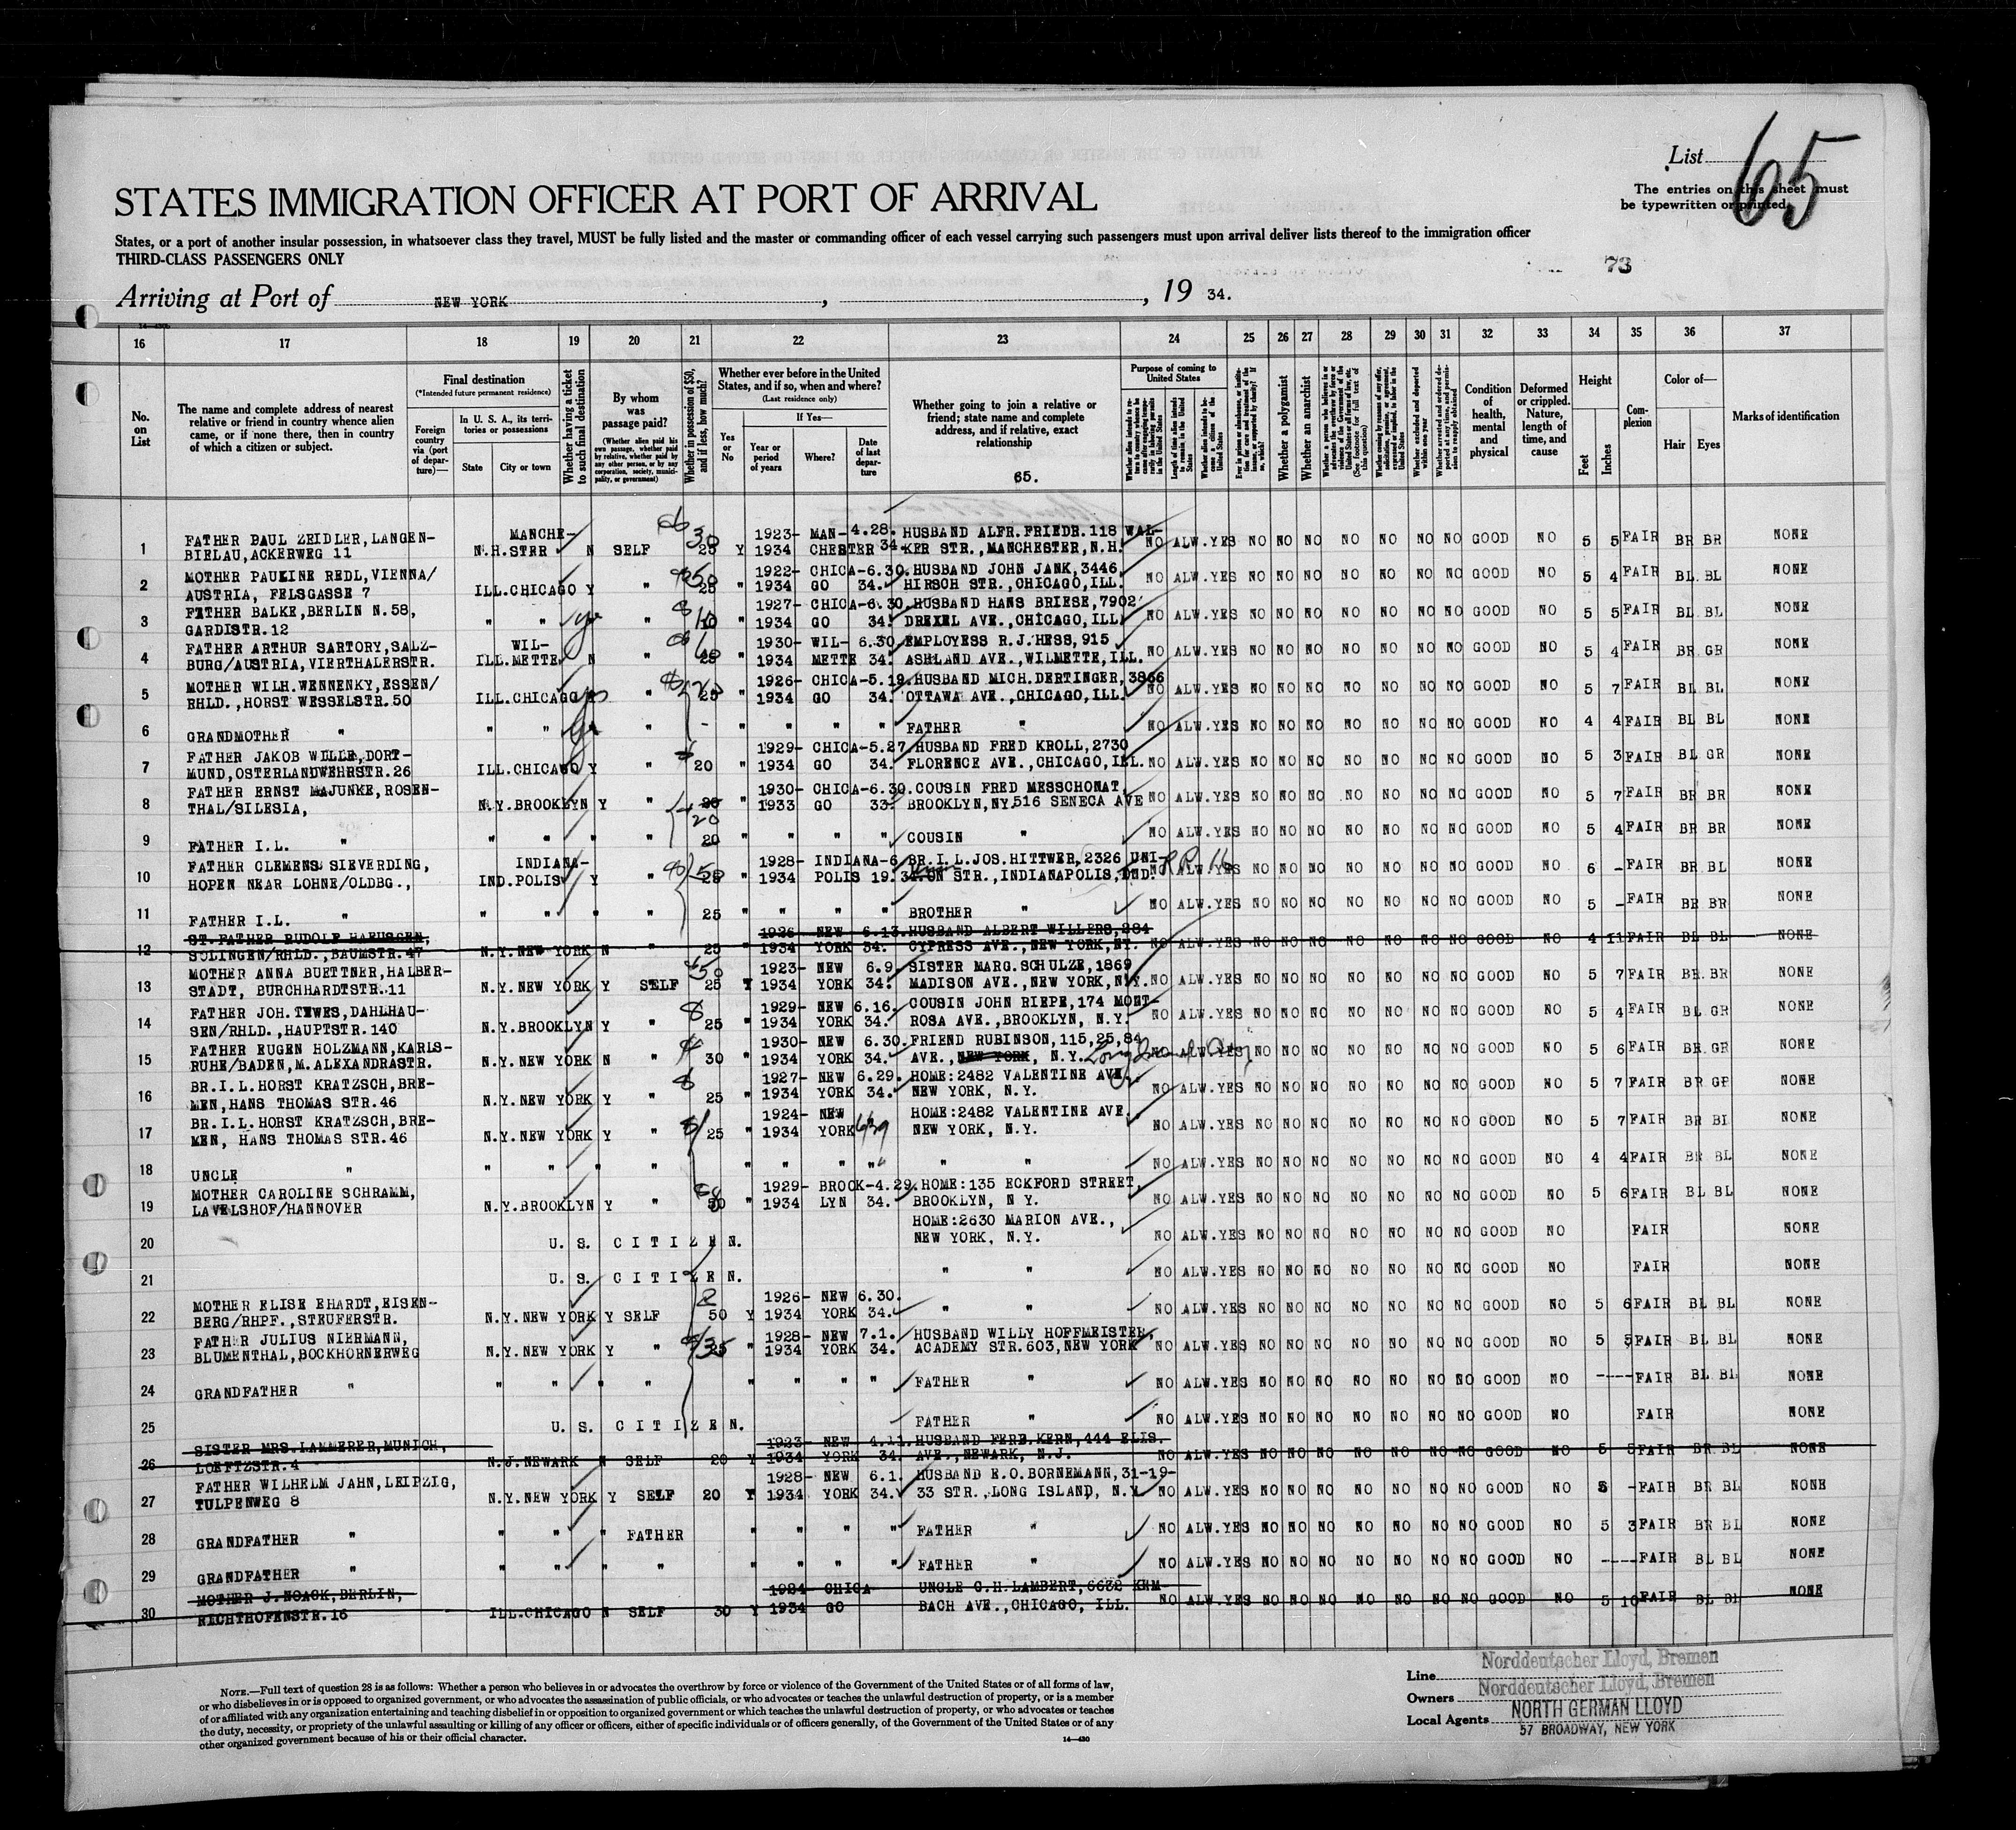 List 65
The entries on this sheet must
be typewritten or printed.
STATES IMMIGRATION OFFICER AT PORT OF ARRIVAL
States, or a port of another insular possession, in whatsoever class they travel, MUST be fully listed and the master or commanding officer of each vessel carrying such passengers must upon arrival deliver lists thereof to the immigration officer
THIRD-CLASS PASSENGERS ONLY
73
Arriving at Port of NEW YORK, , 19 34.
16 17 18 19 20 21 22 23 24 25 26 27 28 29 30 31 32 33 34 35 36 37
No. on List
The name and complete address of nearest relative or friend in country whence alien came, or if none there, then in country of which a citizen or subject.
Final destination
(*Intended future permanent residence)
Foreign country via (port of departure)—
In U. S. A., its territories or possessions
State City or town
Whether having a ticket to such final destination
By whom was passage paid?
(Whether alien paid his own passage, whether paid by relative, whether paid by any other person, or by any corporation, society, municipality, or government)
Whether in possession of $50, and if less, how much?
Whether ever before in the United States, and if so, when and where?
(Last residence only)
Yes or No
If Yes—
Year or period of years
Where?
Date of last departure
Whether going to join a relative or friend; state name and complete address, and if relative, exact relationship
65.
Purpose of coming to United States
Length of time alien intends to remain in the United States
Whether alien intends to become a citizen of the United States
Whether a polygamist
Whether an anarchist
Whether excluded and deported within one year
Condition of health, mental and physical
Deformed or crippled. Nature, length of time, and cause
Height
Feet Inches
Complexion
Color of—
Hair Eyes
Marks of identification
1 FATHER PAUL ZEIDLER, LANGEN-BIELAU, ACKERWEG 11 N.H. MANCHE-STER N SELF 30 25 Y 1923-1934 MAN-CHESTER 4.28.34. HUSBAND ALFR. FRIEDR. 118 WAL-KER STR., MANCHESTER, N.H. NO ALW. YES NO NO NO NO NO NO NO GOOD NO 5 5 FAIR BR BR NONE
2 MOTHER PAULINE REDL, VIENNA/AUSTRIA, FELSGASSE 7 ILL. CHICAGO Y " 50 25 " 1922-1934 CHICA-GO 6.30.34. HUSBAND JOHN JANK, 3446 HIRSCH STR., CHICAGO, ILL. NO ALW. YES NO NO NO NO NO NO NO GOOD NO 5 4 FAIR BL. BL NONE
3 FATHER BALKE, BERLIN N.58, GARDISTR. 12 " " " 10 " 1927-1934 CHICA-GO 6.30.34. HUSBAND HANS BRIESE, 7902 DREXEL AVE., CHICAGO, ILL. NO ALW. YES NO NO NO NO NO NO NO GOOD NO 5 5 FAIR BL. BL NONE
4 FATHER ARTHUR SARTORY, SALZ-BURG/AUSTRIA, VIERTHALERSTR. ILL. WIL-METTE N " 25 " 1930-1934 WIL-METTE 6.30.34. EMPLOYESS R.J. HESS, 915 ASHLAND AVE., WILMETTE, ILL. NO ALW. YES NO NO NO NO NO NO NO GOOD NO 5 4 FAIR BR. GR NONE
5 MOTHER WILH. WENNENKY, ESSEN/RHLD., HORST WESSELSTR. 50 ILL. CHICAGO " 25 " 1926-1934 CHICA-GO 5.19.34. HUSBAND MICH. DERTINGER, 3866 OTTAWA AVE., CHICAGO, ILL. NO ALW. YES NO NO NO NO NO NO NO GOOD NO 5 7 FAIR BL BL NONE
6 GRANDMOTHER " " " " - " " " " FATHER " NO ALW. YES NO NO NO NO NO NO NO GOOD NO 4 4 FAIR BL BL NONE
7 FATHER JAKOB WILLE, DORT-MUND, OSTERLANDWEHRSTR. 26 ILL. CHICAGO Y " 20 " 1929-1934 CHICA-GO 5.27.34. HUSBAND FRED KROLL, 2730 FLORENCE AVE., CHICAGO, ILL. NO ALW. YES NO NO NO NO NO NO NO GOOD NO 5 3 FAIR BL GR NONE
8 FATHER ERNST MAJUNKE, ROSEN-THAL/SILESIA, N.Y. BROOKLYN Y " 20 " 1930-1933 CHICA-GO 6.30.33. COUSIN FRED MESSCHONAT, BROOKLYN, NY. 516 SENECA AVE NO ALW. YES NO NO NO NO NO NO NO GOOD NO 5 7 FAIR BR BR NONE
9 FATHER I.L. " " " " " 20 " " " " COUSIN " NO ALW. YES NO NO NO NO NO NO NO GOOD NO 5 4 FAIR BR BR NONE
10 FATHER CLEMENS SIEVERDING, HOPEN NEAR LOHNE/OLDBG., IND. INDIANA-POLIS Y " 50 25 " 1928-1934 INDIANA-POLIS 6.19.34. BR. I.L. JOS. HITTWER, 2326 UNI-ON STR., INDIANAPOLIS, IND. R.R. NO ALW. YES NO NO NO NO NO NO NO GOOD NO 6 - FAIR BR BL NONE
11 FATHER I.L. " " " " " 25 " " " " BROTHER " NO ALW. YES NO NO NO NO NO NO NO GOOD NO 5 - FAIR BR BR NONE
12 ST. FATHER RUDOLF HAEUSGEN, SOLINGEN/RHLD., BAUMSTR. 47 N.Y. NEW YORK N " 25 1926-1934 NEW YORK 6.13.34. HUSBAND ALBERT WILLERS, 284 CYPRESS AVE., NEW YORK, NY. NO ALW. YES NO NO NO NO NO NO NO GOOD NO 4 11 FAIR BL BL NONE
13 MOTHER ANNA BUETTNER, HALBER-STADT, BURCHHARDTSTR. 11 N.Y. NEW YORK Y SELF 50 25 Y 1923-1934 NEW YORK 6.9.34. SISTER MARG. SCHULZE, 1869 MADISON AVE., NEW YORK, N.Y. NO ALW. YES NO NO NO NO NO NO NO GOOD NO 5 7 FAIR BR. BR NONE
14 FATHER JOH. TEWES, DAHLHAU-SEN/RHLD., HAUPTSTR. 140 N.Y. BROOKLYN Y " 25 " 1929-1934 NEW YORK 6.16.34. COUSIN JOHN RIEPE, 174 MONT-ROSA AVE., BROOKLYN, N.Y. NO ALW. YES NO NO NO NO NO NO NO GOOD NO 5 4 FAIR BL GR NONE
15 FATHER EUGEN HOLZMANN, KARLS-RUHE/BADEN, M. ALEXANDRASTR. N.Y. NEW YORK N " 30 " 1930-1934 NEW YORK 6.30.34. FRIEND RUBINSON, 115, 25, 84 AVE., NEW YORK, N.Y. NO ALW. YES NO NO NO NO NO NO NO GOOD NO 5 6 FAIR BR. GR NONE
16 BR. I.L. HORST KRATZSCH, BRE-MEN, HANS THOMAS STR. 46 N.Y. NEW YORK Y " 25 " 1927-1934 NEW YORK 6.29.34. HOME: 2482 VALENTINE AVE., NEW YORK, N.Y. NO ALW. YES NO NO NO NO NO NO NO GOOD NO 5 7 FAIR BR GR NONE
17 BR. I.L. HORST KRATZSCH, BRE-MEN, HANS THOMAS STR. 46 N.Y. NEW YORK Y " 25 " 1924-1934 NEW YORK 6/29 HOME: 2482 VALENTINE AVE. NEW YORK, N.Y. NO ALW. YES NO NO NO NO NO NO NO GOOD NO 5 7 FAIR BR BL NONE
18 UNCLE " " " " " " " " " " " NO ALW. YES NO NO NO NO NO NO NO GOOD NO 4 4 FAIR BR BL NONE
19 MOTHER CAROLINE SCHRAMM, LAVELSHOF/HANNOVER N.Y. BROOKLYN Y " 50 " 1929-1934 BROOK-LYN 4.29.34. HOME: 135 ECKFORD STREET, BROOKLYN, N Y. NO ALW. YES NO NO NO NO NO NO NO GOOD NO 5 6 FAIR BL BL NONE
20 U. S. CITIZEN. HOME: 2630 MARION AVE., NEW YORK, N.Y. NO ALW. YES NO NO NO NO NO NO NO GOOD NO FAIR NONE
21 U. S. CITIZEN. " " NO ALW. YES NO NO NO NO NO NO NO GOOD NO FAIR NONE
22 MOTHER ELISE EHARDT, EISEN-BERG/RHPF., STEUFERSTR. N.Y. NEW YORK Y SELF 50 Y 1926-1934 NEW YORK 6.30.34. " " NO ALW. YES NO NO NO NO NO NO NO GOOD NO 5 6 FAIR BL BL NONE
23 FATHER JULIUS NIERMANN, BLUMENTHAL, BOCKHORNERWEG N.Y. NEW YORK Y " 35 25 " 1928-1934 NEW YORK 7.1.34. HUSBAND WILLY HOFFMEISTER, ACADEMY STR. 603, NEW YORK NO ALW. YES NO NO NO NO NO NO NO GOOD NO 5 5 FAIR BL BL NONE
24 GRANDFATHER " " " " " " " " " FATHER " NO ALW. YES NO NO NO NO NO NO NO GOOD NO ---- FAIR BL BL NONE
25 U. S. CITIZEN. FATHER " NO ALW. YES NO NO NO NO NO NO NO GOOD NO FAIR NONE
26 SISTER MRS. LAMMERER, MUNICH, LOEFTZSTR. 4 N.J. NEWARK N SELF 20 Y 1923-1934 NEW YORK 4.11.34. HUSBAND FERD. KERN, 444 ELIS. AVE., NEWARK, N.J. NO ALW. YES NO NO NO NO NO NO NO GOOD NO 5 5 FAIR BR BL NONE
27 FATHER WILHELM JAHN, LEIPZIG, TULPENWEG 8 N.Y. NEW YORK Y SELF 20 Y 1928-1934 NEW YORK 6.1.34. HUSBAND E.O. BORNEMANN, 31-19-33 STR., LONG ISLAND, N.Y. NO ALW. YES NO NO NO NO NO NO NO GOOD NO 5 - FAIR BR BL NONE
28 GRANDFATHER " " " " FATHER " " " " FATHER " NO ALW. YES NO NO NO NO NO NO NO GOOD NO 5 3 FAIR BR BL NONE
29 GRANDFATHER " " " " " " " " " FATHER " NO ALW. YES NO NO NO NO NO NO NO GOOD NO ---- FAIR BL BL NONE
30 MOTHER J. NOACK, BERLIN, RICHTHOFENSTR. 16 ILL. CHICAGO N SELF 30 Y 1924-1934 CHICA-GO UNCLE C.H. LAMBERT, 6632 KIM-BACH AVE., CHICAGO, ILL. NO ALW. YES NO NO NO NO NO NO NO GOOD NO 5 10 FAIR BL BL NONE
NOTE.—Full text of question 28 is as follows: Whether a person who believes in or advocates the overthrow by force or violence of the Government of the United States or of all forms of law,
or who disbelieves in or is opposed to organized government, or who advocates the assassination of public officials, or who advocates or teaches the unlawful destruction of property, or is a member
of or affiliated with any organization entertaining and teaching disbelief in or opposition to organized government or which teaches the unlawful destruction of property, or who advocates or teaches
the duty, necessity, or propriety of the unlawful assaulting or killing of any officer or officers, either of specific individuals or of officers generally, of the Government of the United States or of any
other organized government because of his or their official character.
14—430
Line Norddeutscher Lloyd, Bremen
Owners Norddeutscher Lloyd, Bremen
Local Agents NORTH GERMAN LLOYD
57 BROADWAY, NEW YORK